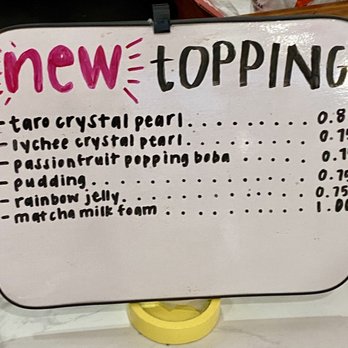 new topping
- taro crystal pearl.......... 0.8
- lychee crystal pearl.......... 0.7
- passionfruit popping boba ....... 0.7
- pudding................. 0.75
- rainbow jelly.............. 0.75
- matcha milk foam .......... 1.00